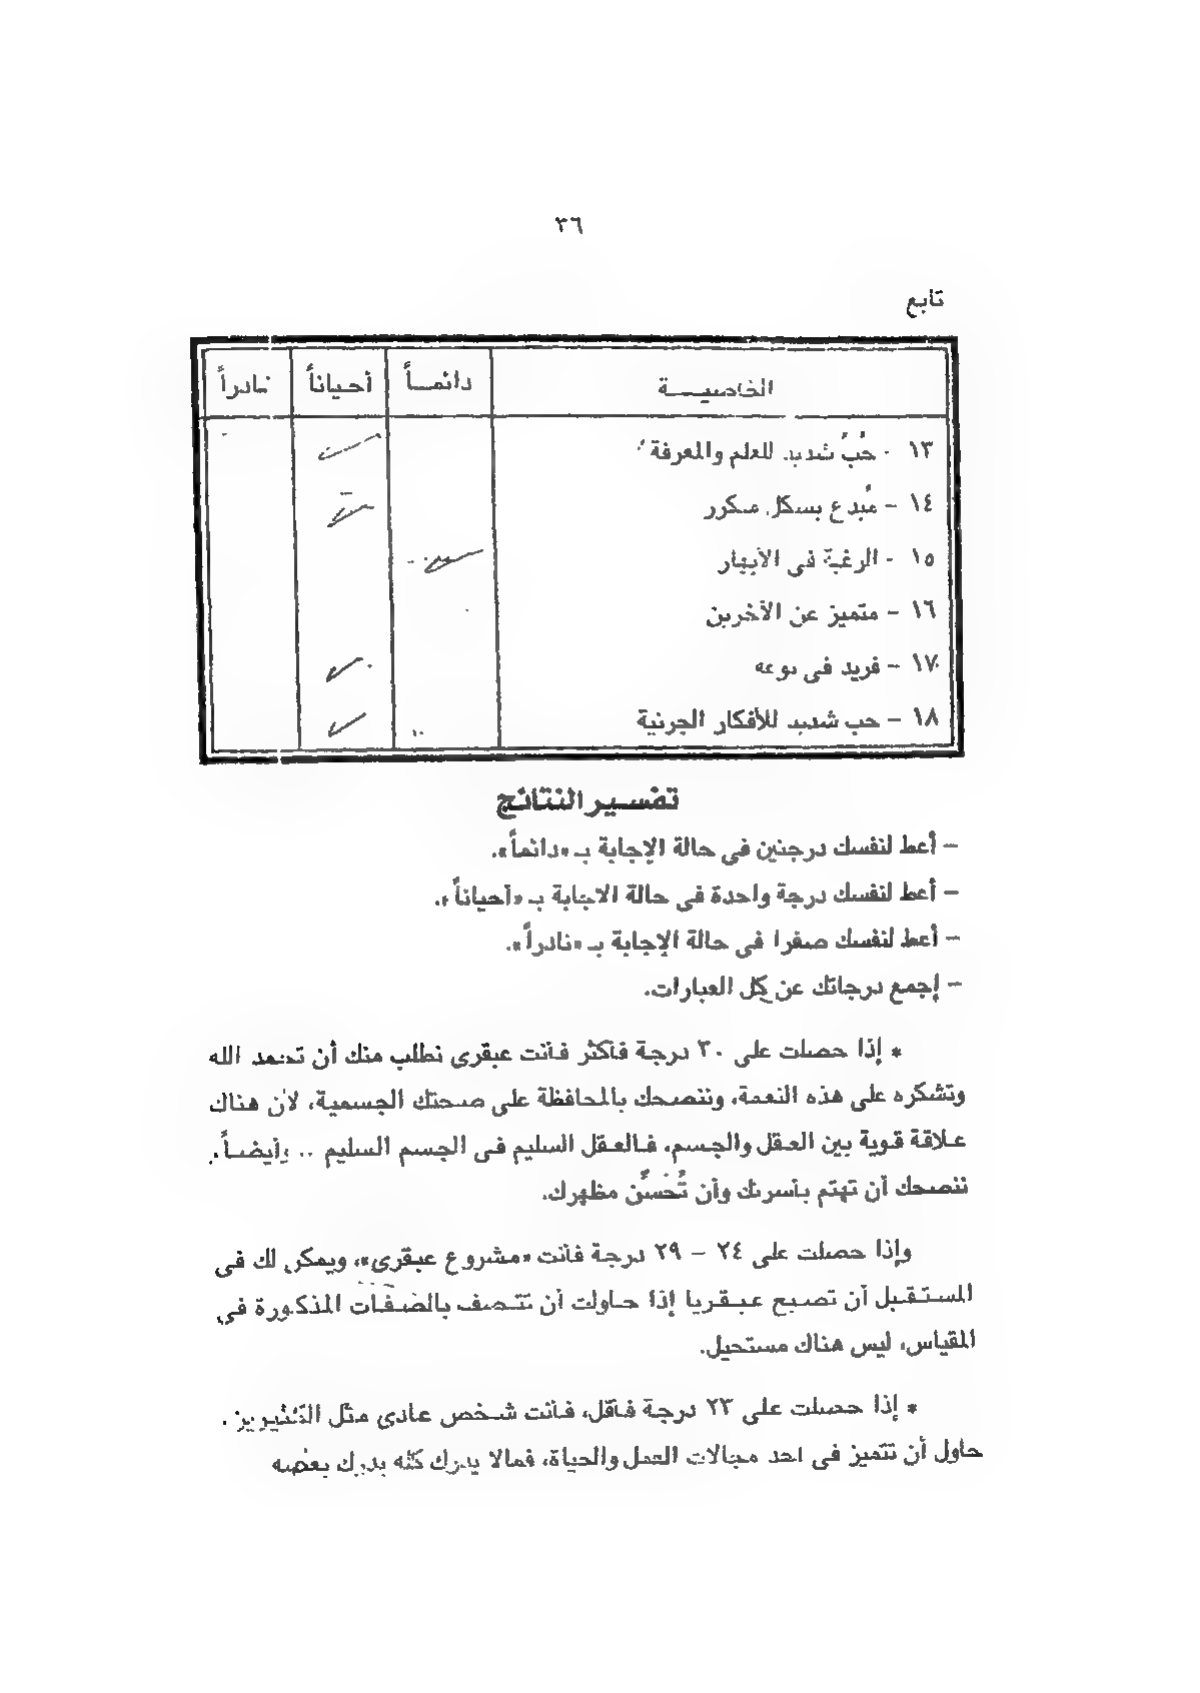 ٣٦
تابع
الخاصيـــة دائمــاً أحياناً نادراً
١٣ - حُبٌ شديد للعلم والمعرفة
١٤ - مُبدع بشكل متكرر
١٥ - الرغبة فى الأبهار
١٦ - متميز عن الآخرين
١٧ - فريد فى نوعه
١٨ - حب شديد للأفكار الجرئية
تفسـير النتائج
- أعط لنفسك درجتين فى حالة الإجابة بـ «دائماً».
- أعط لنفسك درجة واحدة فى حالة الاجابة بـ «أحياناً».
- أعط لنفسك صفرا فى حالة الإجابة بـ «نادراً».
- إجمع درجاتك عن كل العبارات.
* إذا حصلت على ٣٠ درجة فأكثر فأنت عبقرى نطلب منك أن تحمد الله
وتشكره على هذه النعمة، وننصحك بالمحافظة على صحتك الجسمية، لأن هناك
علاقة قوية بين العقل والجسم، فالعقل السليم فى الجسم السليم .. وأيضـاً،
ننصحك أن تهتم بأسرتك وأن تُحَسِّن مظهرك.
وإذا حصلت على ٢٤ - ٢٩ درجة فأنت «مشروع عبقرى»، ويمكن لك فى
المستقبل أن تصبح عبقريا إذا حاولت أن تتصف بالصفات المذكورة فى
المقياس، ليس هناك مستحيل.
* إذا حصلت على ٢٣ درجة فأقل، فأنت شخص عادى مثل الكثيرين.
حاول أن تتميز فى احد مجالات العمل والحياة، فمالا يدرك كله يدرك بعضه